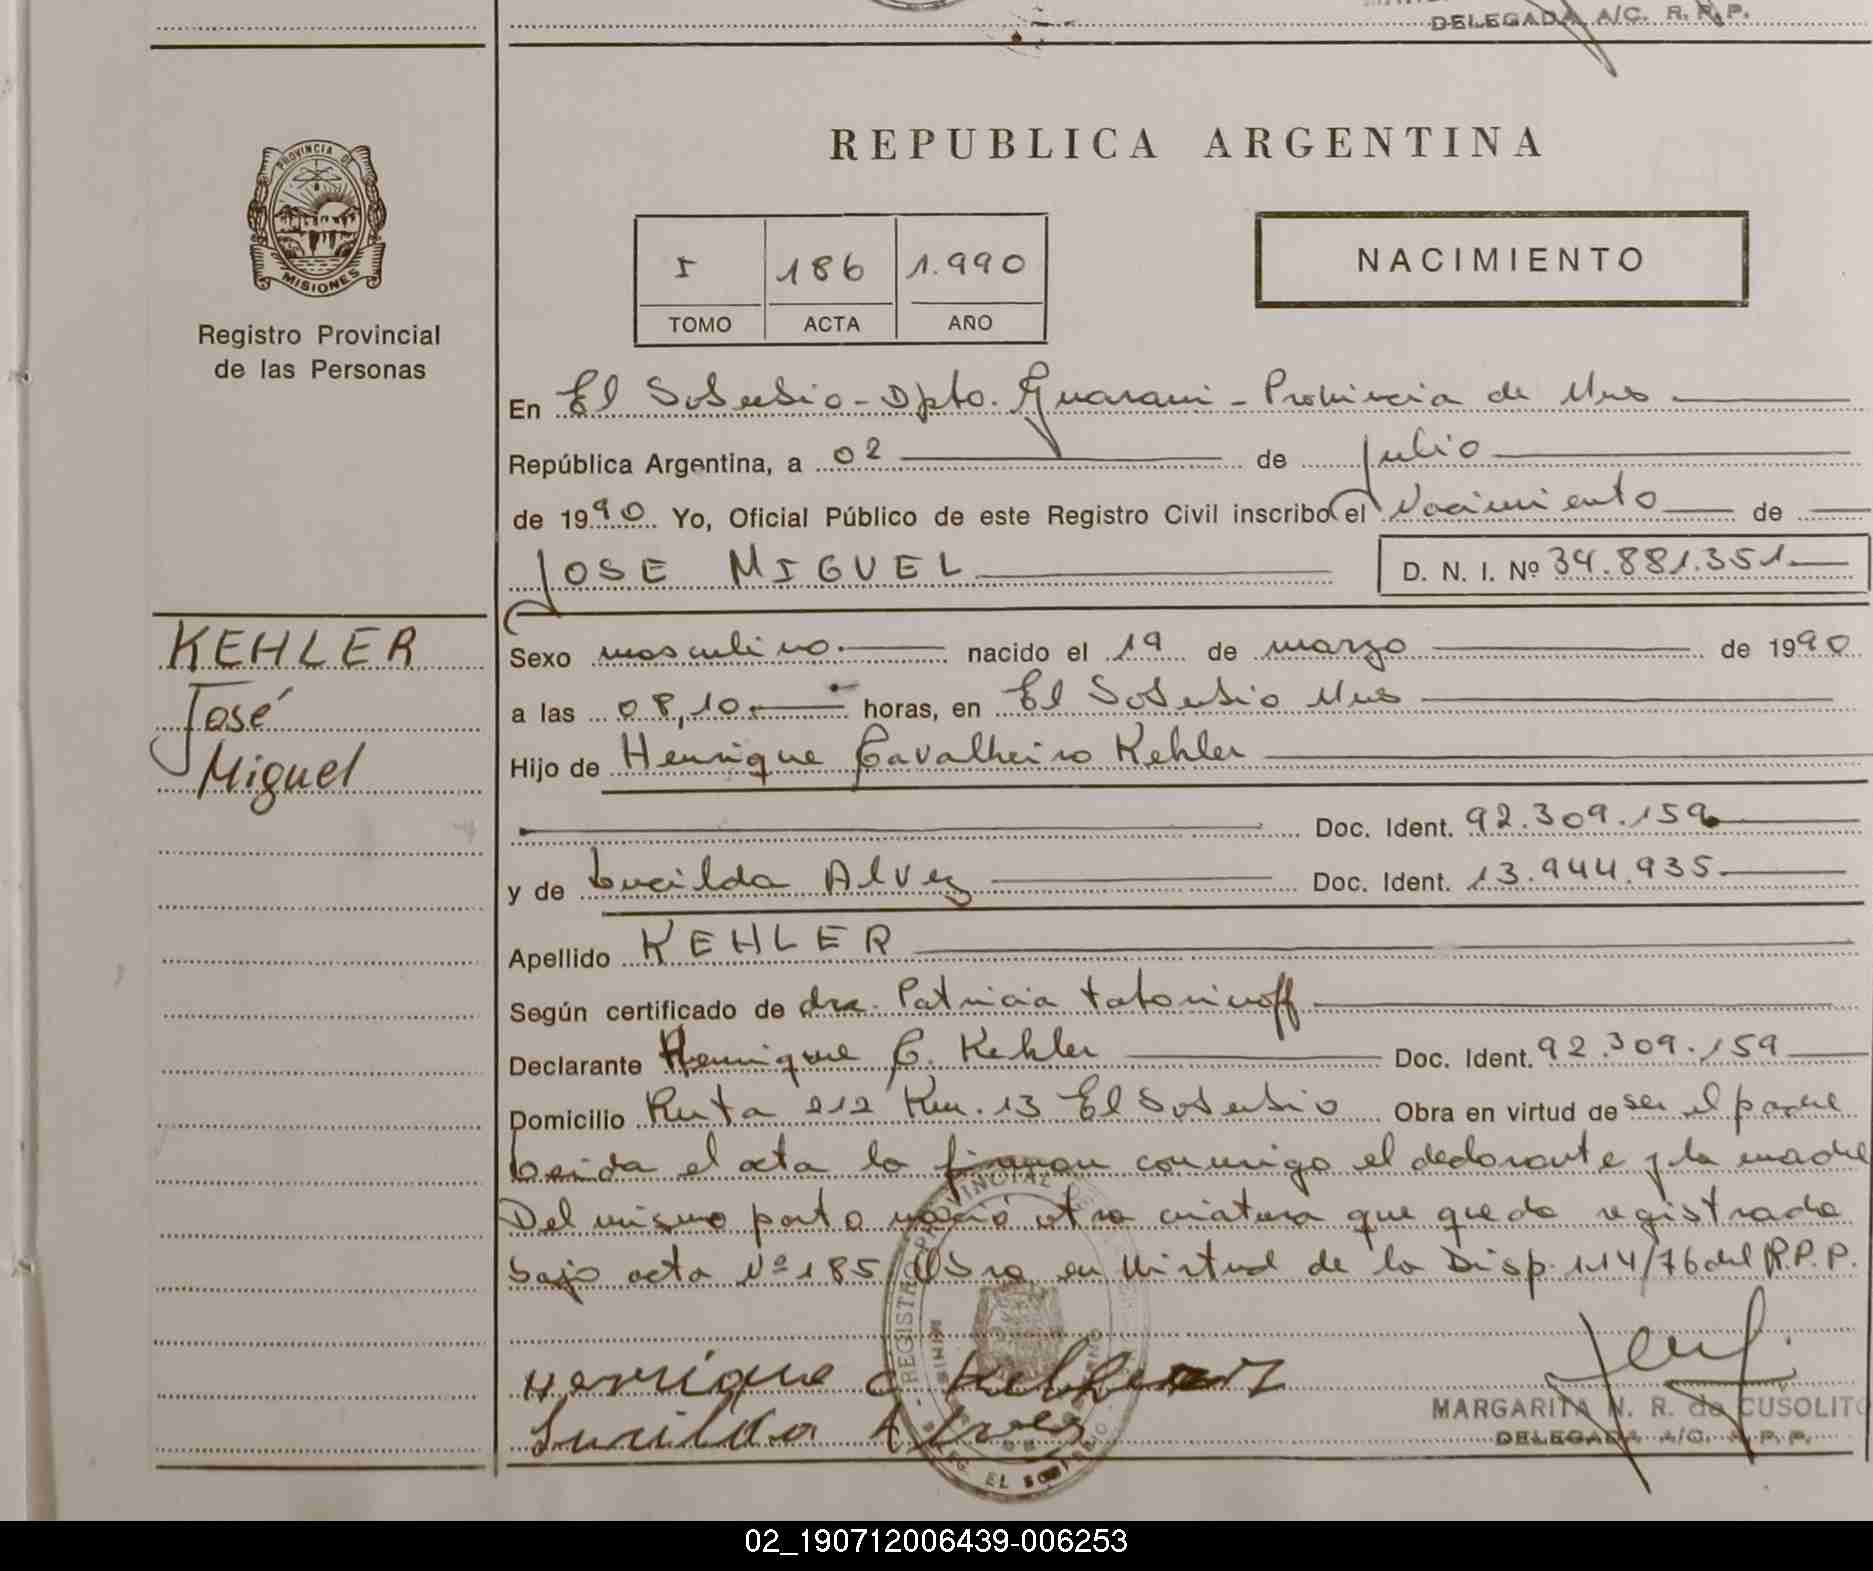 DELEGADA A/C. R. P. P.
PROVINCIA DE
MISIONES
Registro Provincial
de las Personas
REPUBLICA ARGENTINA
I 186 1.990
TOMO ACTA AÑO
NACIMIENTO
En El Soberbio - Dpto. Guarani - Provincia de Mnes
República Argentina, a 02 de julio
de 1990 Yo, Oficial Público de este Registro Civil inscribo el Nacimiento de
JOSE MIGUEL D. N. I. Nº 34.881.351
KEHLER
José
Miguel
Sexo masculino. nacido el 19 de marzo de 1990
a las 08,10. horas, en El Soberbio Mnes
Hijo de Henrique Cavalheiro Kehler
Doc. Ident. 92.309.159
y de Lucilda Alvez Doc. Ident. 13.944.935
Apellido KEHLER
Según certificado de dra. Patricia
Declarante Henrique C. Kehler Doc. Ident. 92.309.159
Domicilio Ruta 212 Km. 13 El Soberbio Obra en virtud de ser el padre
Leida el acta la firman conmigo el declarante y la madre
Del mismo parto nació otra criatura que queda registrada
bajo acta Nº 185 Obra en virtud de la Disp. 114/76 del R.P.P.
Henrique C Kehler
Lucilda Alves
REGISTRO PROVINCIAL DE
EL SOBERBIO
MARGARITA N. R. de CUSOLITO
DELEGADA A/C. R. P. P.
02_190712006439-006253